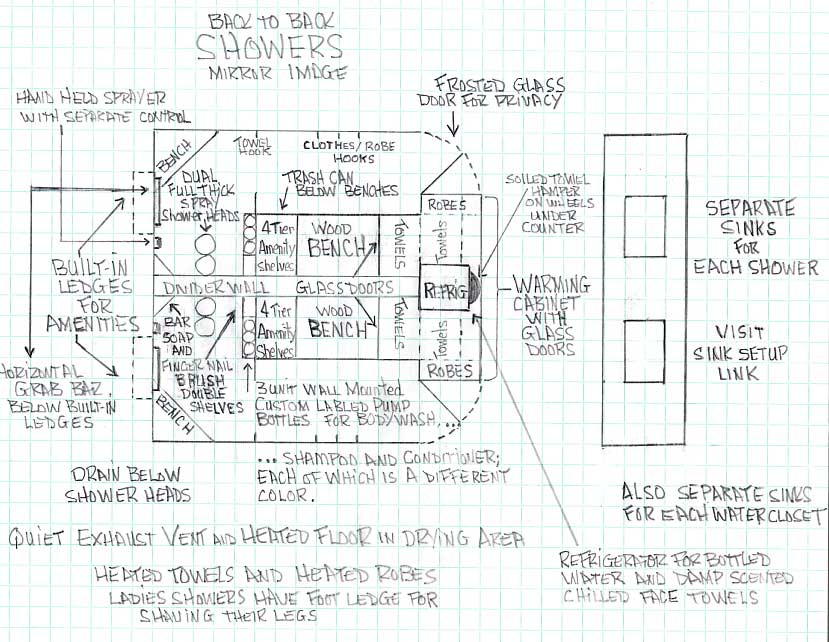 BACK TO BACK
SHOWERS
MIRROR IMAGE
HAND HELD SPRAYER
WITH SEPARATE CONTROL
FROSTED GLASS
DOOR FOR PRIVACY
BENCH
TOWEL
HOOK
CLOTHES/ROBE
HOOKS
DUAL
FULL THICK
SPRAY
Shower HEADS
TRASH CAN
BELOW BENCHES
SOILED TOWEL
HAMPER
ON WHEELS
UNDER
COUNTER
ROBES
4 Tier
Amenity
Shelves
WOOD
BENCH
TOWELS
Towels
SEPARATE
SINKS
FOR
EACH SHOWER
BUILT-IN
LEDGES
FOR
AMENITIES
DIVIDER WALL
GLASS DOORS
REFRIG
WARMING
CABINET
WITH
GLASS
DOORS
BAR
SOAP
AND
FINGER NAIL
BRUSH
DOUBLE
SHELVES
4 Tier
Amenity
Shelves
WOOD
BENCH
TOWELS
Towels
ROBES
VISIT
SINK SETUP
LINK
HORIZONTAL
GRAB BAR
BELOW BUILT-IN
LEDGES
BENCH
3 UNIT WALL MOUNTED
CUSTOM LABLED PUMP
BOTTLES FOR BODYWASH, ...
... SHAMPOO AND CONDITIONER;
EACH OF WHICH IS A DIFFERENT
COLOR.
DRAIN BELOW
SHOWER HEADS
ALSO SEPARATE SINKS
FOR EACH WATER CLOSET
QUIET EXHAUST VENT AND HEATED FLOOR IN DRYING AREA
REFRIGERATOR FOR BOTTLED
WATER AND DAMP SCENTED
CHILLED FACE TOWELS
HEATED TOWELS AND HEATED ROBES
LADIES SHOWERS HAVE FOOT LEDGE FOR
SHAVING THEIR LEGS